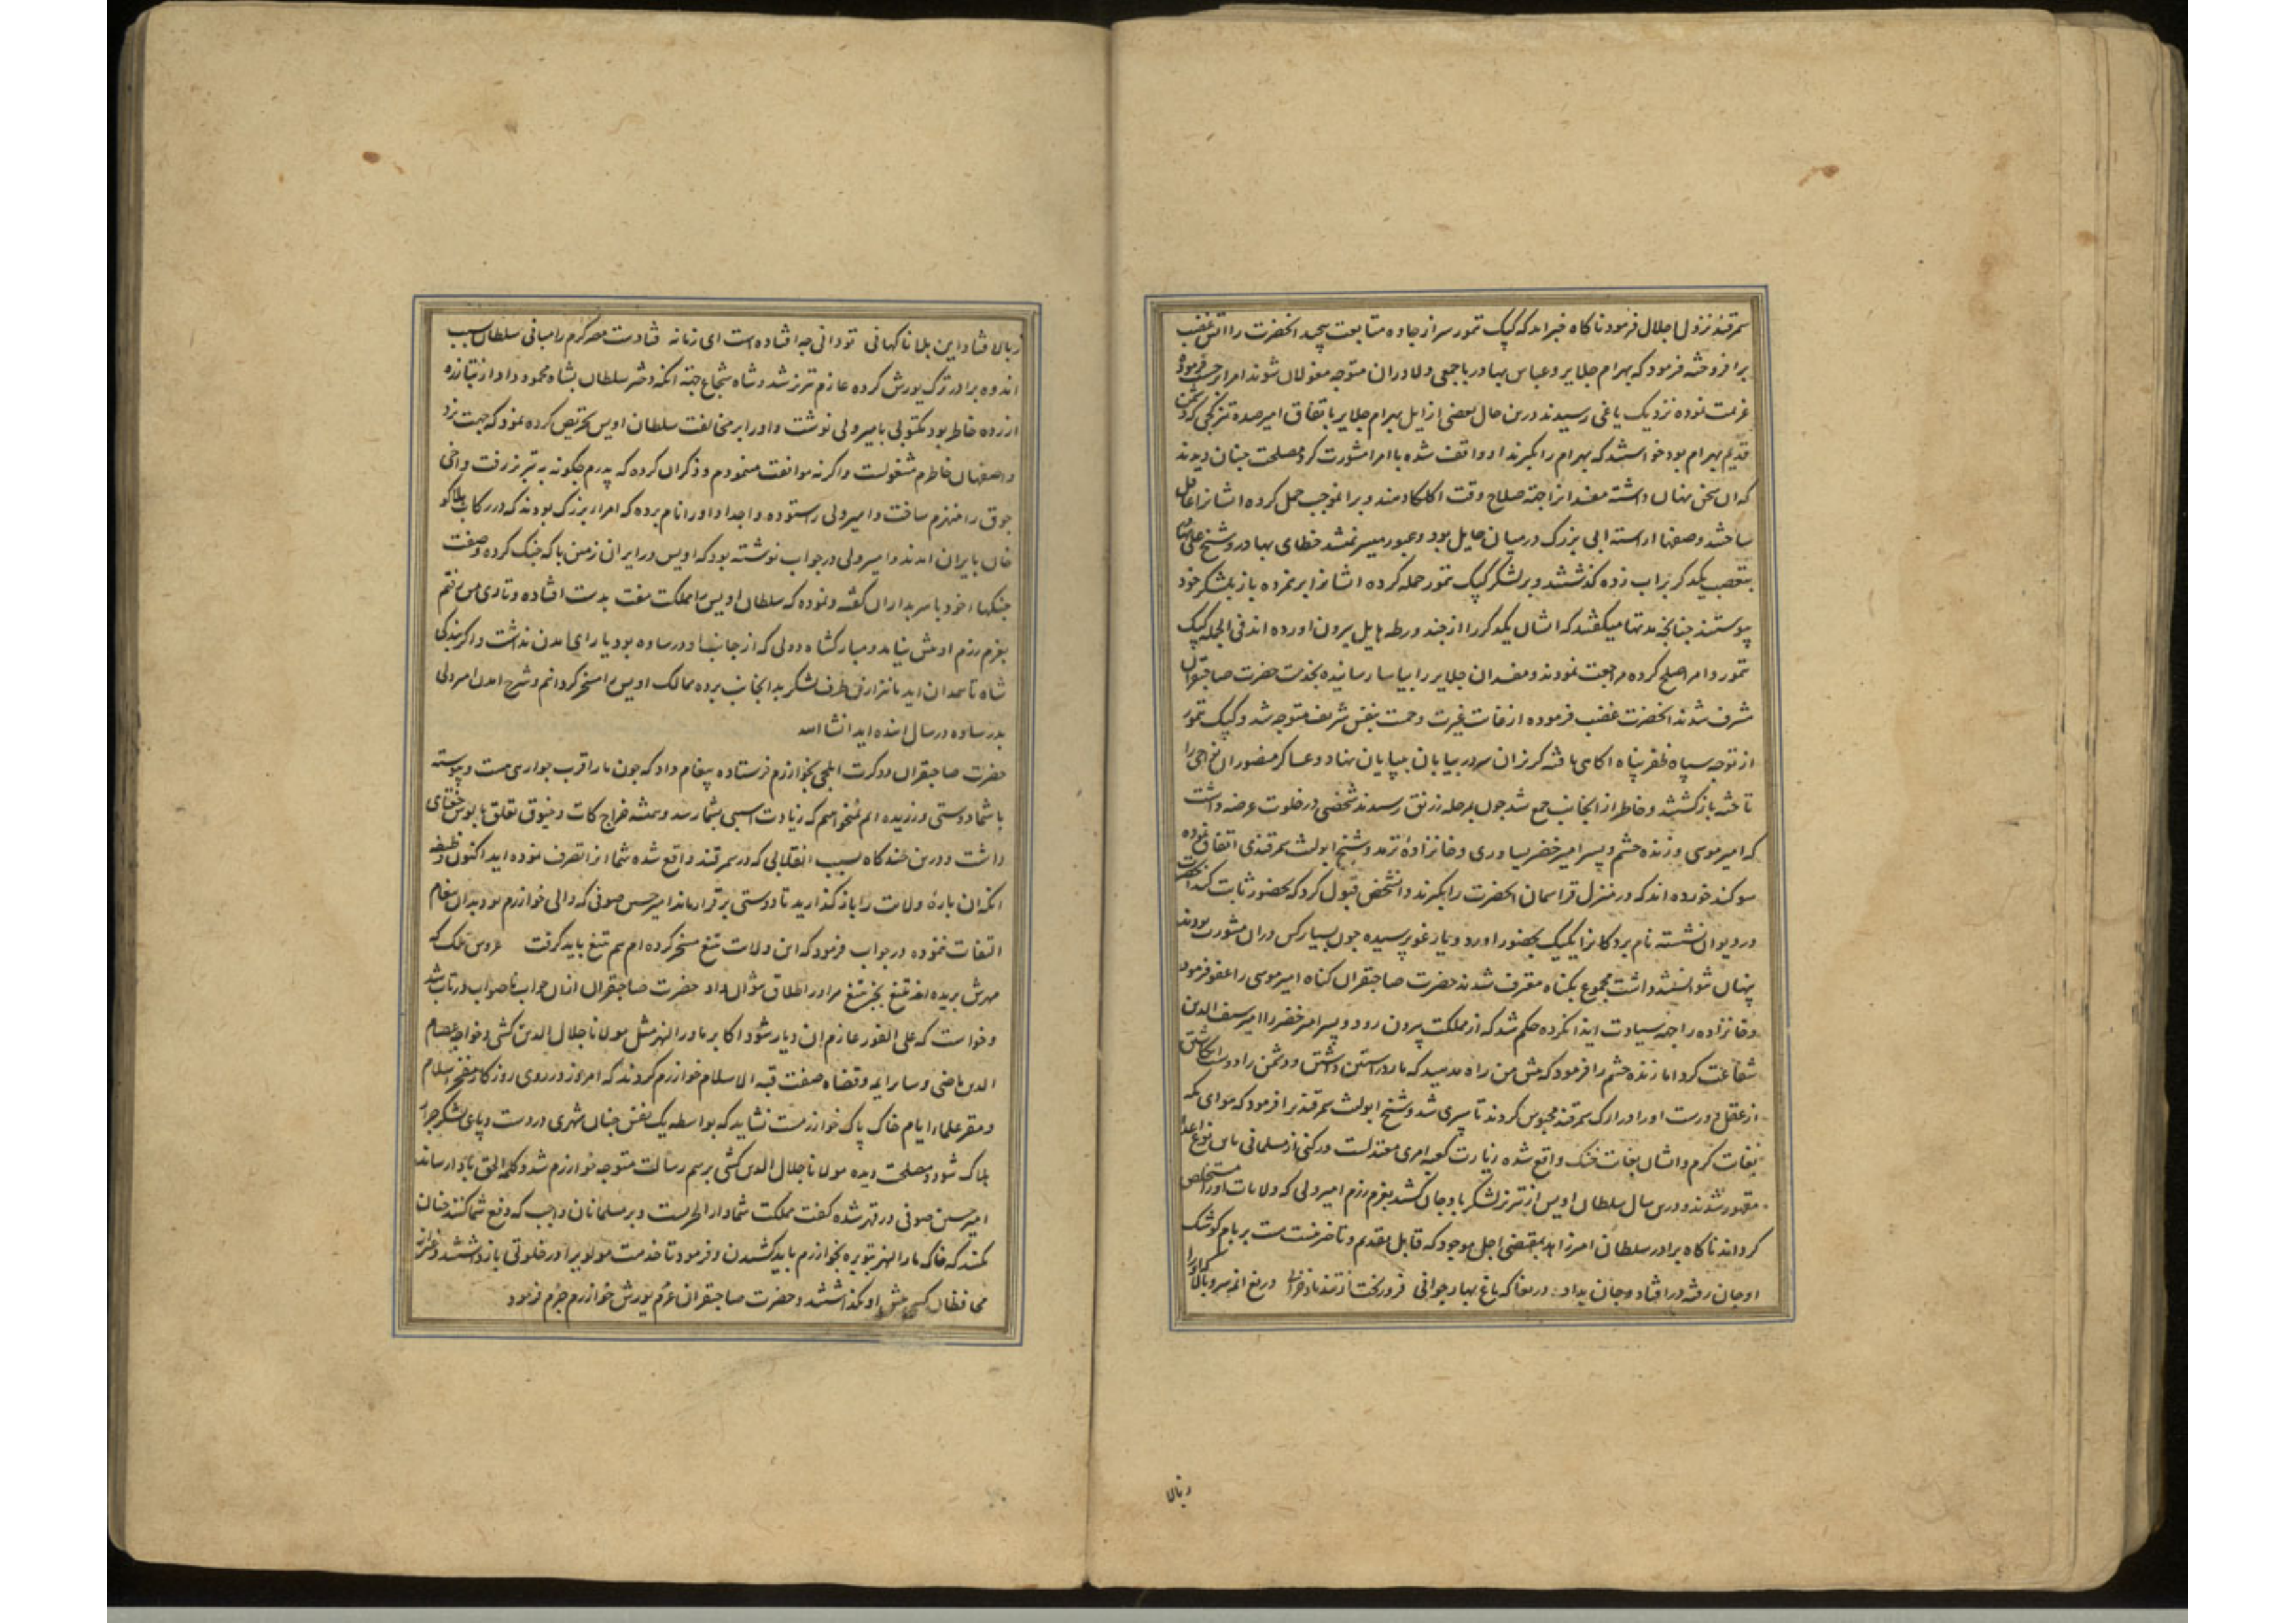 سمرقند نزول اجلال فرمود ناکاه خبر امد که کپک تمور سر از جاده متابعت پیچید انحضرت را اتش غضب
برافروخته فرمود که بهرام جلایر و عباس بهادر با جمعی دلاوران متوجه مغولان شوند امرا بر حسب فرموده
عزیمت نموده نزدیک یاغی رسیدند درین حال بعضی از ایل بهرام جلایر باتفاق امیر صده که دشمن
قدیم بهرام بود خواستند که بهرام را بکیرند او واقف شده با امرا مشورت کرد مصلحت چنان دیدند
که ان سخن پنهان داشته مفسدانرا جهة صلاح وقت حمل کرده ایشانرا غافل
ساختند و صفها اراسته ابی بزرک در میان حایل بود و عبور میسر نمیشد خطای بهادر و شیخ علی بهادر
بتعصب یکدکر بر اب زده کذشتند و بر لشکر کپک تمور حمله کرده ایشانرا برهم زده باز بلشکر خود
پیوستند چنانچه مدتها میکفتند که ایشان یکدکر را از چند ورطه هایل بیرون اورده اند فی الجمله کپک
تمور و امرا صلح کرده مراجعت نمودند و مفسدان جلایر را بیاسا رسانیده بخدمت حضرت صاحبقران
مشرف شدند انحضرت غضب فرموده از غایت غیرت و حمیت بنفس شریف متوجه شد و کپک تمور
از توجه سپاه ظفر پناه اکاهی یافته کریزان سر در بیابان بیپایان نهاد و عساکر منصور ان نواحی را
تاخته باز کشتند و خاطر از انجانب جمع شد چون بمرحله رسیدند شخصی در خلوت عرضه داشت
که امیر موسی و زنده حشم و پسر امیر خضر یساوری و خانزاده ترمد و شیخ ابولیث سمرقندی اتفاق نموده
سوکند خورده اند که در منزل قراسمان انحضرت را بکیرند و انشخص قبول کرد که بحضور ثابت کند انحضرت
در دیوان نشسته نام بردکانرا یک یک بحضور اورد و یارغو پرسیده چون بسیار کس دران مشورت بودند
پنهان نتوانستند داشت مجموع بکناه معترف شدند حضرت صاحبقران کناه امیر موسی را عفو فرمود
و خانزاده را جهة سیادت ایذا نکرده حکم شد که از مملکت بیرون رود و پسر امیر خضر را امیر سیف الدین
شفاعت کرد اما زنده حشم را فرمود که پیش من راه مدهید که مار در استین داشتن و دشمن را دوست انکاشتن
از عقل دورست او را در ارک سمرقند محبوس کردند تا سپری شد و شیخ ابولیث سمرقندی را فرمود که هوای مکه
بغایت کرم و ایشان بغایت خنک واقع شده زیارت کعبه امری معتدلست و رکنی از مسلمانی باین نوع اعدا
مقهور شدند و درین سال سلطان اویس از تبریز لشکر باوجان کشید بعزم رزم امیر ولی که ولایات او را مستخلص
کرداند ناکاه برادر سلطان امیر زاهد بمقتضی اجل موجود که قابل تقدیم و تاخیر نیست مست بر بام کوشک
اوجان رفته درافتاد و جان بداد دریغا که باغ بهار جوانی فرو ریخت از تندباد خزانی دریغ انسرو بالا
زبالا
زبالا فتاد این بلا ناکهانی تو دانی چه افتاده است ای زمانه فتادست مصر کرم را مبانی سلطان سبب
اندوه برادر ترک یورش کرده عازم تبریز شد و شاه شجاع جهة انکه دختر سلطان بشاه محمود داد از نیا
ازرده خاطر بود مکتوبی بامیر ولی نوشت و او را بر مخالفت سلطان اویس تحریص کرده نمود که جهت یزد
و اصفهان خاطرم مشغولست و اکرنه موافقت مینمودم و ذکر ان کرده که پدرم چکونه به تبریز رفت و اخی
جوق را منهزم ساخت و امیر ولی را ستوده و اجداد او را نام برده که امراء بزرک بودند که در رکاب هلاکو
خان بایران امدند و امیر ولی در جواب نوشته بود که اویس در ایران زمین با که جنک کرده وصفت
جنکهاء خود با سربداران کفته و نموده که سلطان اویس را مملکت مفت بدست افتاده و تا ری من رفتم
بعزم رزم او پیش نیامد و مبارکشاه دولی که از جانب او در ساوه بود یارای امدن نداشت و اکر بندکی
شاه تا همدان اید ما نیز ازین طرف لشکر بدانجانب برده ممالک اویس را مسخر کردانم و شرح امدن امیر ولی
بدر ساوه در سال اینده اید انشا الله
حضرت صاحبقران دو کرت ایلچی بخوارزم فرستاده پیغام داد که چون ما را قرب جواری هست و پیوسته
با شما دوستی ورزیده ایم نمیخواهیم که زیادت اسیبی بشما رسد و همیشه خراج کات و خیوق تعلق بالوس جغتای
داشت و درین چند کاه بسبب انقلابی که در سمرقند واقع شده شما انرا تصرف نموده اید اکنون وظیفه
انکه ان پارۀ ولایت را باز کذارید تا دوستی برقرار ماند امیر حسین صوفی که والی خوارزم بود بدان پیغام
التفات ننموده در جواب فرمود که این ولایت بتیغ مسخر کرده ام هم بتیغ باید کرفت عروس ملک که
مهرش بریده اند بتیغ بجز بتیغ مر او را طلاق نتوان داد حضرت صاحبقران ازان جواب ناصواب در تاب شد
و خواست که علی الفور عازم ان دیار شود اکابر ماورالنهر مثل مولانا جلال الدین کشی و خواجه عصام
الدین قاضی و سایر ایمه و قضاه صفت قبة الاسلام خوارزم کردند که امروز در روی روزکار مفخر اسلام
و مقر علماء ایام خاک پاک خوارزمست نشاید که بواسطه یک نفس چنان شهری در دست و پای لشکر جرار
هلاک شود و مصلحت دیده مولانا جلال الدین کشی برسم رسالت متوجه خوارزم شد و کلمة الحق بادا رساند
امیر حسین صوفی در قهر شده کفت مملکت شما دارالحربست و بر مسلمانان واجب که دفع شما کنند چنان
کنند که خاک ماورالنهر بتوبره بخوارزم باید کشیدن و فرمود تا خدمت مولوی را در خلوتی بازداشتند و غیر از
محافظان کسی پیش او نکذاشتند و حضرت صاحبقران عزم یورش خوارزم جزم فرمود